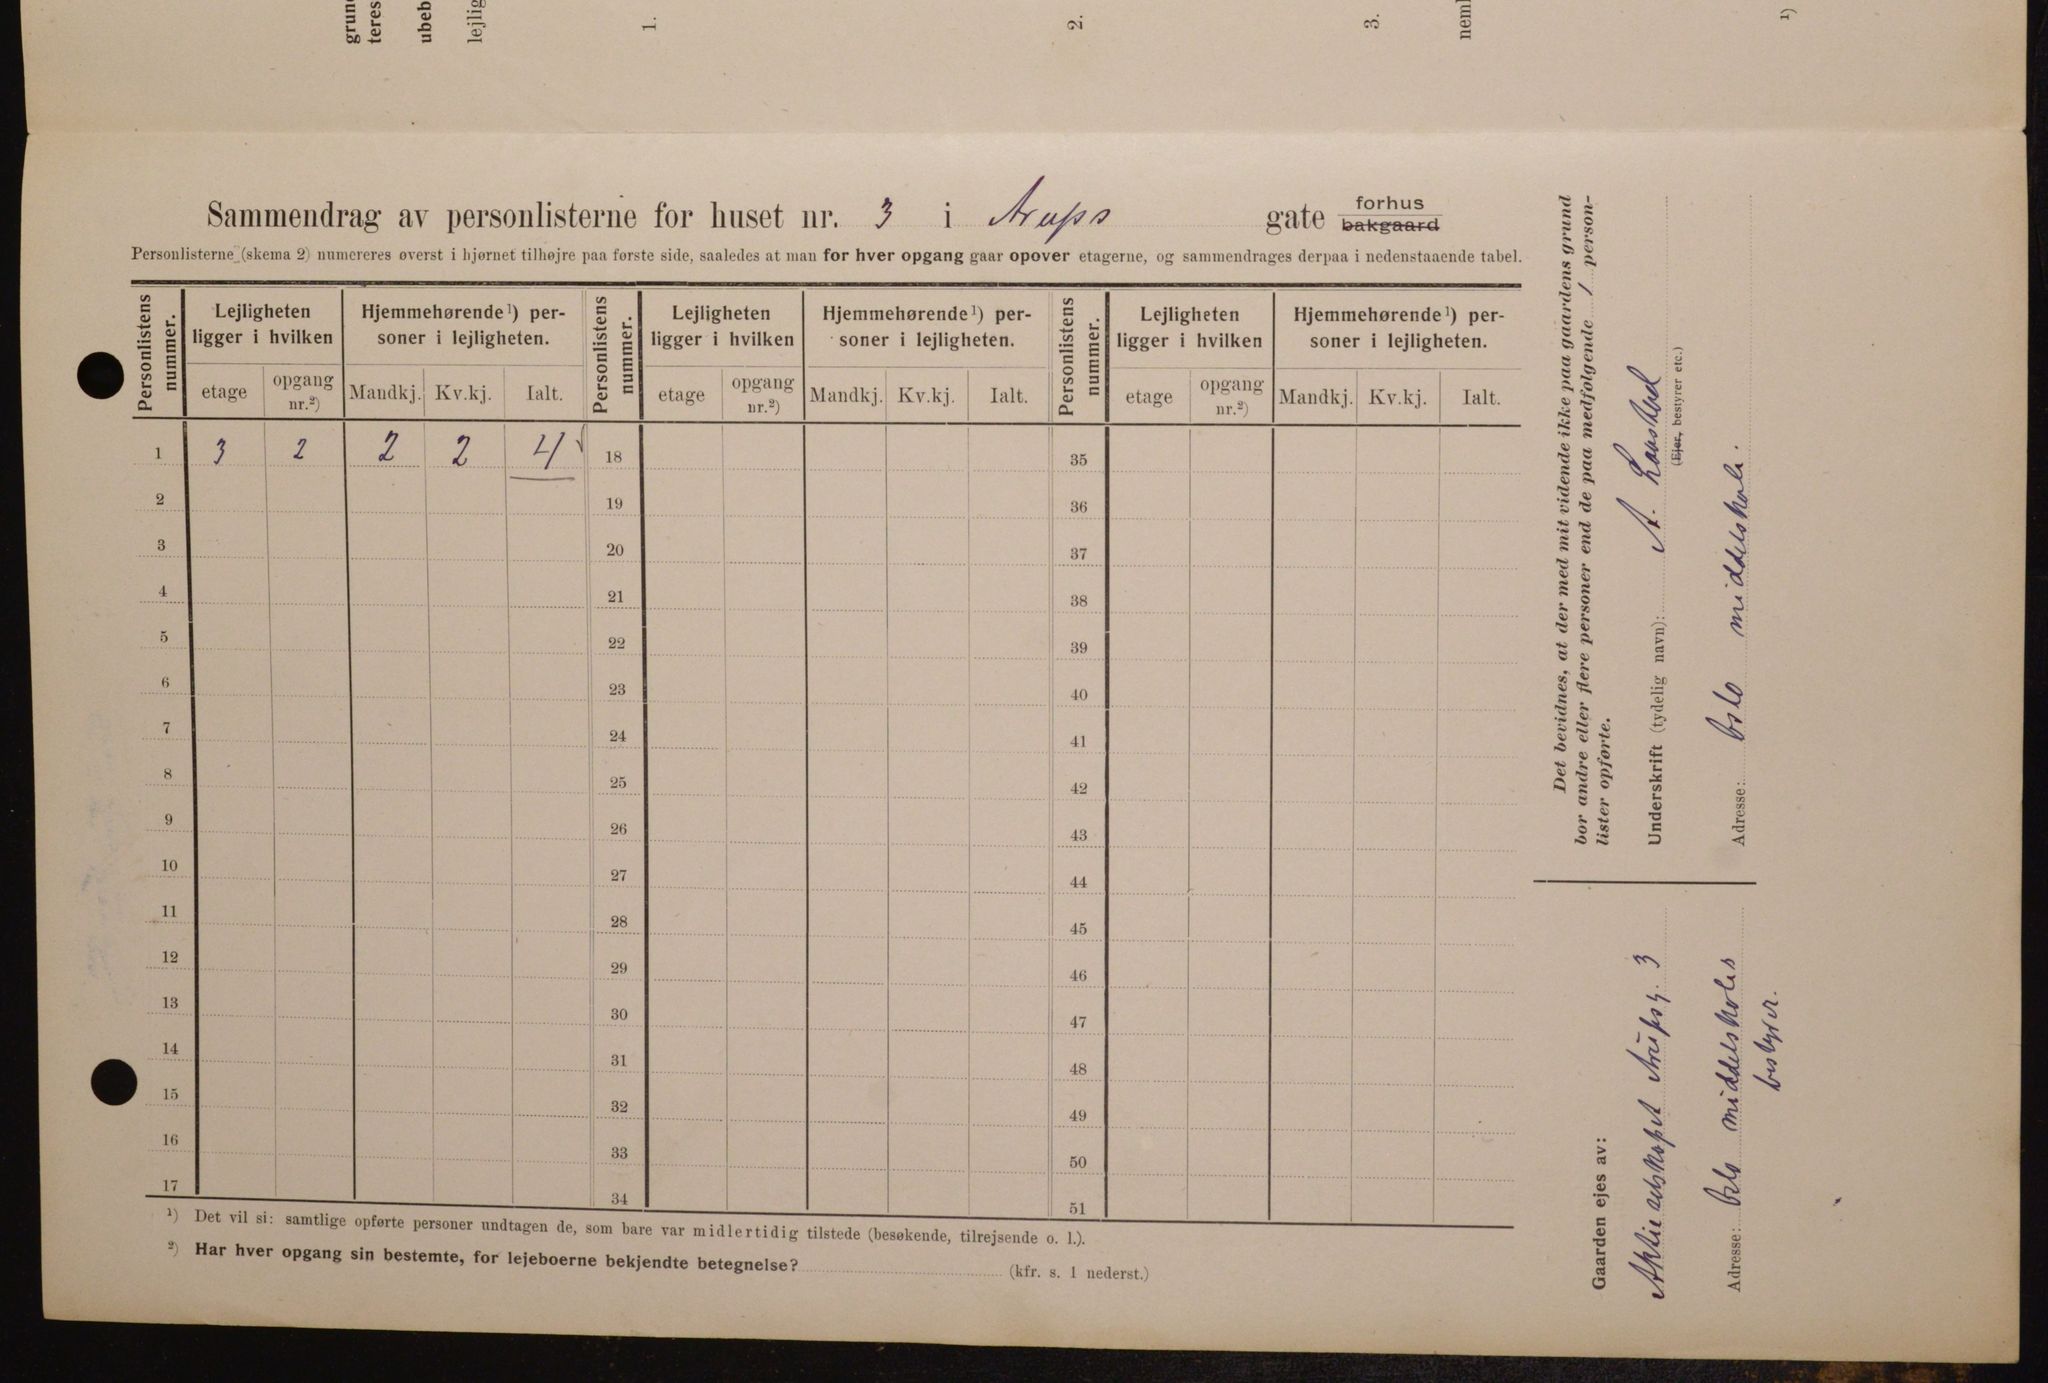 grun
teres
ubeb
lejlig
1.
2.
3.
neml
1)
Sammendrag av personlisterne for huset nr. 3 i Arups gate forhus
bakgaard
Personlisterne (skema 2) numereres øverst i hjørnet tilhøjre paa første side, saaledes at man for hver opgang gaar opover etagerne, og sammendrages derpaa i nedenstaaende tabel.
Personlistens nummer. Lejligheten ligger i hvilken Hjemmehørende 1) personer i lejligheten. Personlistens nummer. Lejligheten ligger i hvilken Hjemmehørende 1) personer i lejligheten. Personlistens nummer. Lejligheten ligger i hvilken Hjemmehørende 1) personer i lejligheten.
etage opgang nr.2) Mandkj. Kv.kj. Ialt. etage opgang nr.2) Mandkj. Kv.kj. Ialt. etage opgang nr.2) Mandkj. Kv.kj. Ialt.
1 3 2 2 2 4 18 35
2 19 36
3 20 37
4 21 38
5 22 39
6 23 40
7 24 41
8 25 42
9 26 43
10 27 44
11 28 45
12 29 46
13 30 47
14 31 48
15 32 49
16 33 50
17 34 51
1) Det vil si: samtlige opførte personer undtagen de, som bare var midlertidig tilstede (besøkende, tilrejsende o. l.).
2) Har hver opgang sin bestemte, for lejeboerne bekjendte betegnelse? (kfr. s. 1 nederst.)
Det bevidnes, at der med mit vidende ikke paa gaardens grund
bor andre eller flere personer end de paa medfølgende 1 person-
lister opførte.
Underskrift (tydelig navn): A.
(Ejer, bestyrer etc.)
Adresse: Oslo middelskole.
Gaarden ejes av:
Aktieselskapet Arupsg. 3
Adresse: Oslo middelskoles
bestyrer.